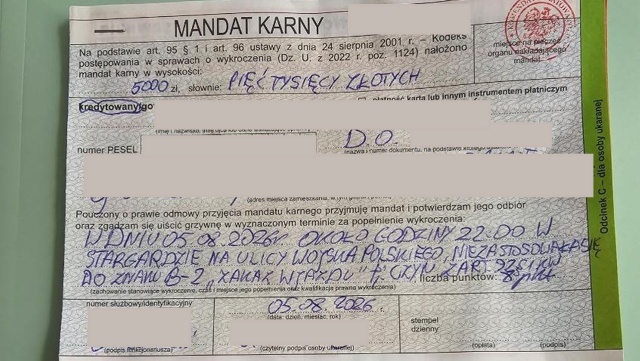 MANDAT KARNY
Na podstawie art. 95 § 1 i art. 96 ustawy z dnia 24 sierpnia 2001 r. – Kodeks
postępowania w sprawach o wykroczenia (Dz. U. z 2022 r. poz. 1124) nałożono
mandat karny w wysokości:
5000 zł, słownie: PIĘĆ TYSIĘCY ZŁOTYCH
kredytowany
płatność kartą lub innym instrumentem płatniczym
miejsce na pieczęć
organu nakładającego
mandat
numer PESEL
D.O.
(nazwa i numer dokumentu, na podstawie
(adres miejsca zamieszkania,
Pouczony o prawie odmowy przyjęcia mandatu karnego przyjmuję mandat i potwierdzam jego odbiór
oraz zgadzam się uiścić grzywnę w wyznaczonym terminie za popełnienie wykroczenia:
W DNIU 05.08.2026r. OKOŁO GODZINY 22:00 W
STARGARDZIE NA ULICY WOJSKA POLSKIEGO, NIEZASTOSOWAŁA SIĘ
DO ZNAKU B-2 „ZAKAZ WJAZDU" CZYN Z ART. 92 §1 KW
liczba punktów: 8
(zachowanie stanowiące wykroczenie, czas i miejsce jego popełnienia oraz kwalifikacja prawna wykroczenia)
numer służbowy/identyfikacyjny
05.08.2026
(data: dzień, miesiąc, rok)
stempel
dzienny
(podpis funkcjonariusza)
(czytelny podpis osoby ukaranej)
(opłata)
(podpis)
Odcinek C – dla osoby ukaranej